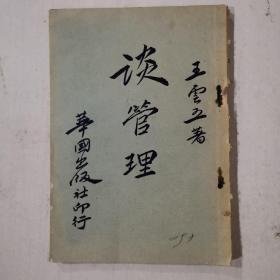 王雲五著
談管理
華國出版社印行